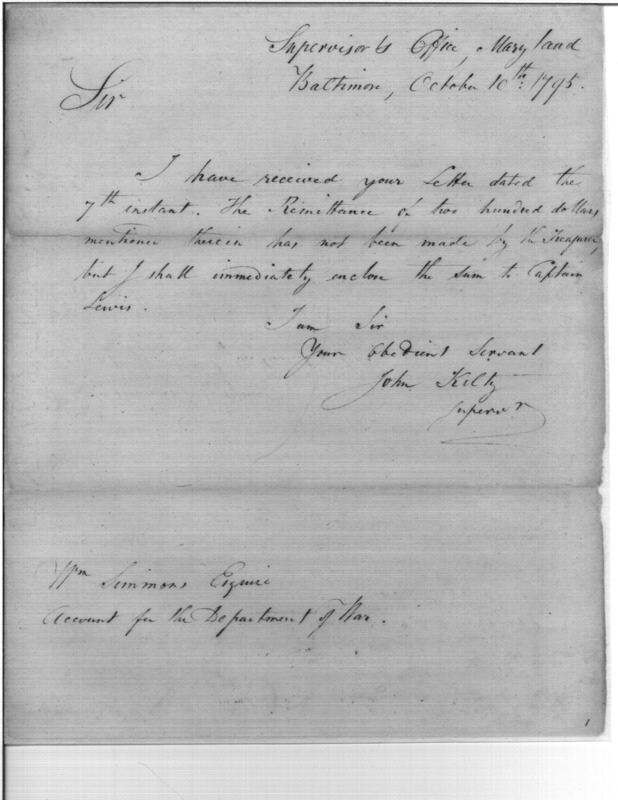 Supervisor's Office, Maryland
Baltimore, October 10th: 1795.
Sir
I have received your Letter dated the
7th instant. The Remittance of two hundred dollars
mentioned therein has not been made by the Treasurer,
but I shall immediately enclose the sum to Captain
Lewis.
I am Sir
Your Obedient Servant
John Kilty
Supervr
Wm Simmons Esquire
Account for the Department of War.
1